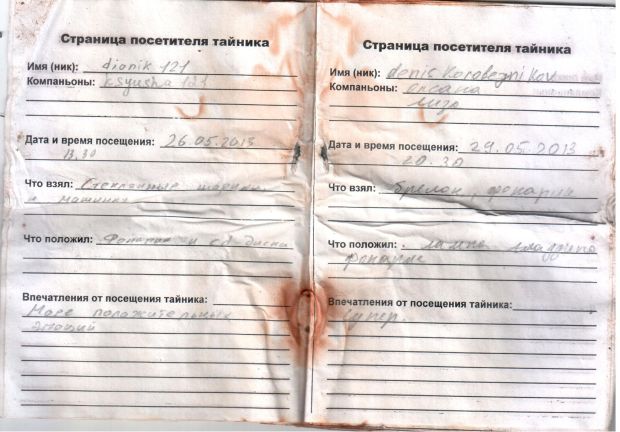 Страница посетителя тайника
Имя (ник): dionik 121
Компаньоны: ksyusha 121
Дата и время посещения: 26.05.2013
13.30
Что взял: Стеклянные шарики
и машинка
Что положил: Фонарик и cd диски
Впечатления от посещения тайника:
Море положительных
эмоций
Страница посетителя тайника
Имя (ник): denis Korobeynikov
Компаньоны: оксана
лиза
Дата и время посещения: 29.05.2013
20.30
Что взял: брелок, фонарик
Что положил: лампа
фонарик
Впечатления от посещения тайника:
супер.